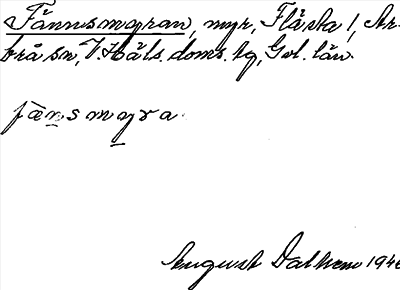 Fännsmyran, myr, Flästa 1, Ar-
brå sn, V. Häls. doms. hg, Gvl. län.
fä̀nsmyra
August Dalhem 194